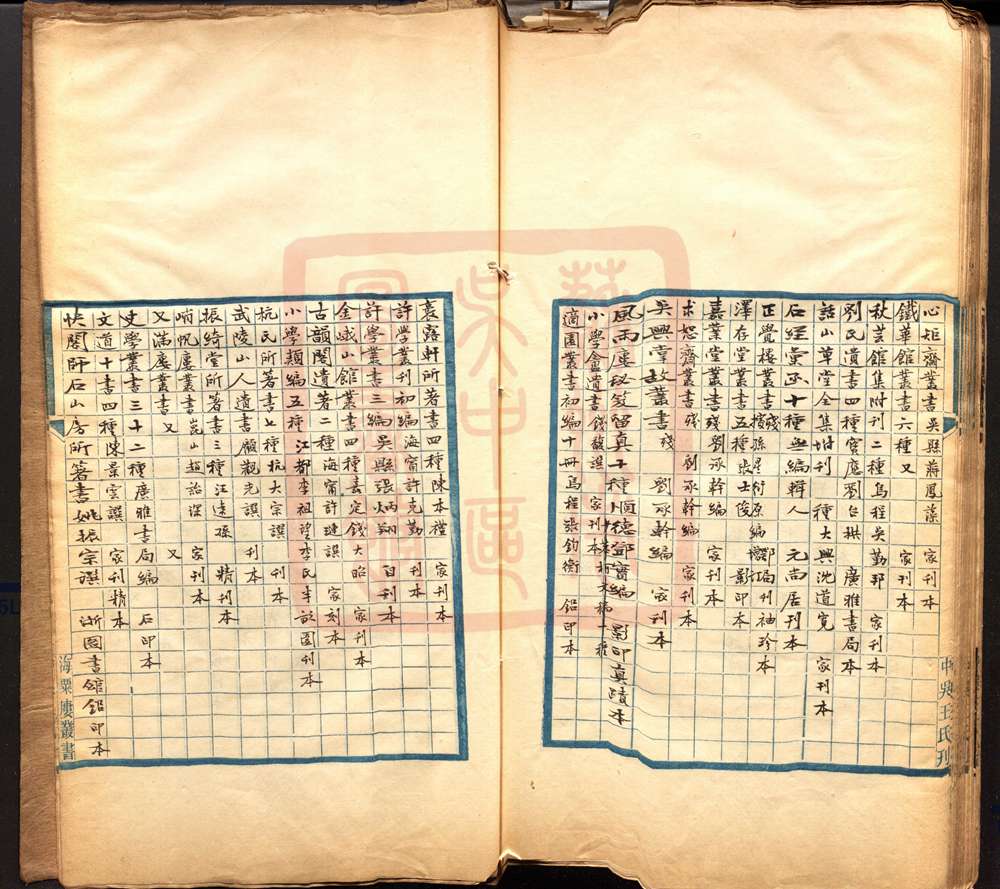 心矩齋叢書 吳縣蔣鳳藻 家刊本
鐵華館叢書六種 又 家刊本
秋芸館集附刊二種 烏程吳勤邦 家刊本
劉氏遺書四種 寶應劉台拱 廣雅書局本
話山草堂全集附刊 種 大興沈道寬 家刊本
石經彙函十種 無編輯人 元尚居刊本
正覺樓叢書殘 孫星衍原編 刊袖珍本
澤存堂叢書五種 張士俊 影印本
嘉業堂叢書殘 劉承幹編 家刊本
求恕齋叢書殘 劉承幹編 家刊本
吳興叢書殘 劉承幹編 家刊本
風雨廔秘笈留真十種 順德鄧實編 影印真蹟本
小學盦遺書 錢馥譔 家刊本
適園叢書初編十冊 烏程張鈞衡 鉛印本
中吳王氏刊
裛露軒所著書四種 陳本禮 家刊本
許學叢刊初編 海甯許克勤 刊本
許學叢書三編 吳縣張炳翔 自刊本
金峨山館叢書四種 嘉定錢大昭 家刊本
古韻閣遺著二種 海甯許槤譔 家刻本
小學類編五種 江都李祖望李氏半畝園刊本
杭氏所著書七種 杭大宗譔 刊本
武陵山人遺書 顧觀光譔 刊本
振綺堂所著書三種 江遠孫 精刊本
峭帆廔叢書 崑山趙詒琛 家刊本
又滿廔叢書 又 又
史學叢書三十二種 廣雅書局編 石印本
文道十書四種 陳景雲譔 家刊精本
快閣師石山房所著書 姚振宗譔 浙圖書館鉛印本
海粟廔叢書